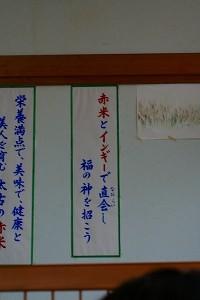 赤米とインギーで直会し
福の神を招こう
栄養満点で、美味で、健康と
美人を育む太古の赤米